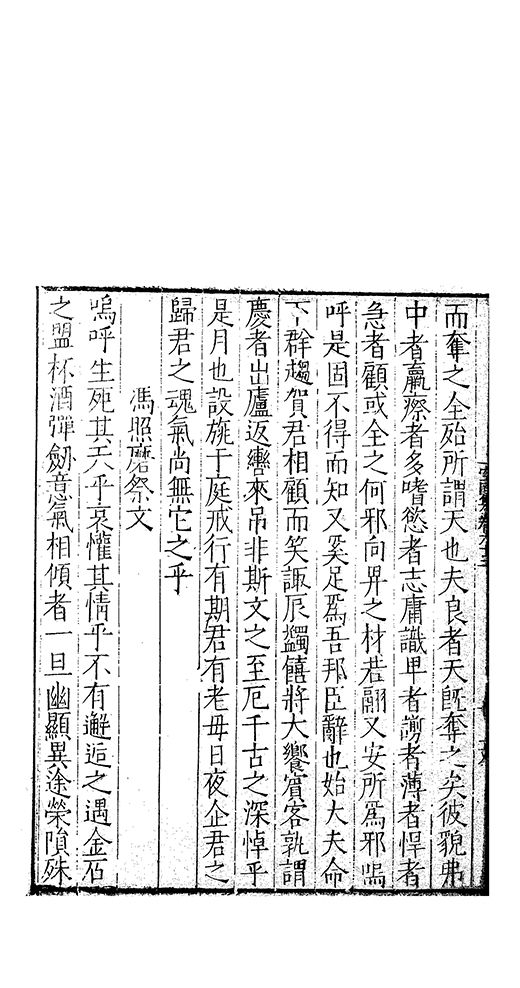 而奪之全殆所謂天也夫良者天旣奪之矣彼貌弗
中者羸瘵者多嗜慾者志庸識甲者謭者薄者悍者
急者顧或全之何邪向畀之材若嗣又安所爲邪嗚
呼是固不得而知又奚足爲吾邦臣辭也始大夫命
下群趨賀君相顧而笑諏辰蠲饎將大饗賓客孰謂
慶者出廬返轡來吊非斯文之至厄千古之深悼乎
是月也設旐于庭戒行有期君有老毋日夜企君之
歸君之魂氣尚無它之乎
馮照磨祭文
嗚呼生死其天乎哀懽其情乎不有邂逅之遇金石
之盟杯酒彈劒意氣相傾者一旦幽顯異途榮隕殊